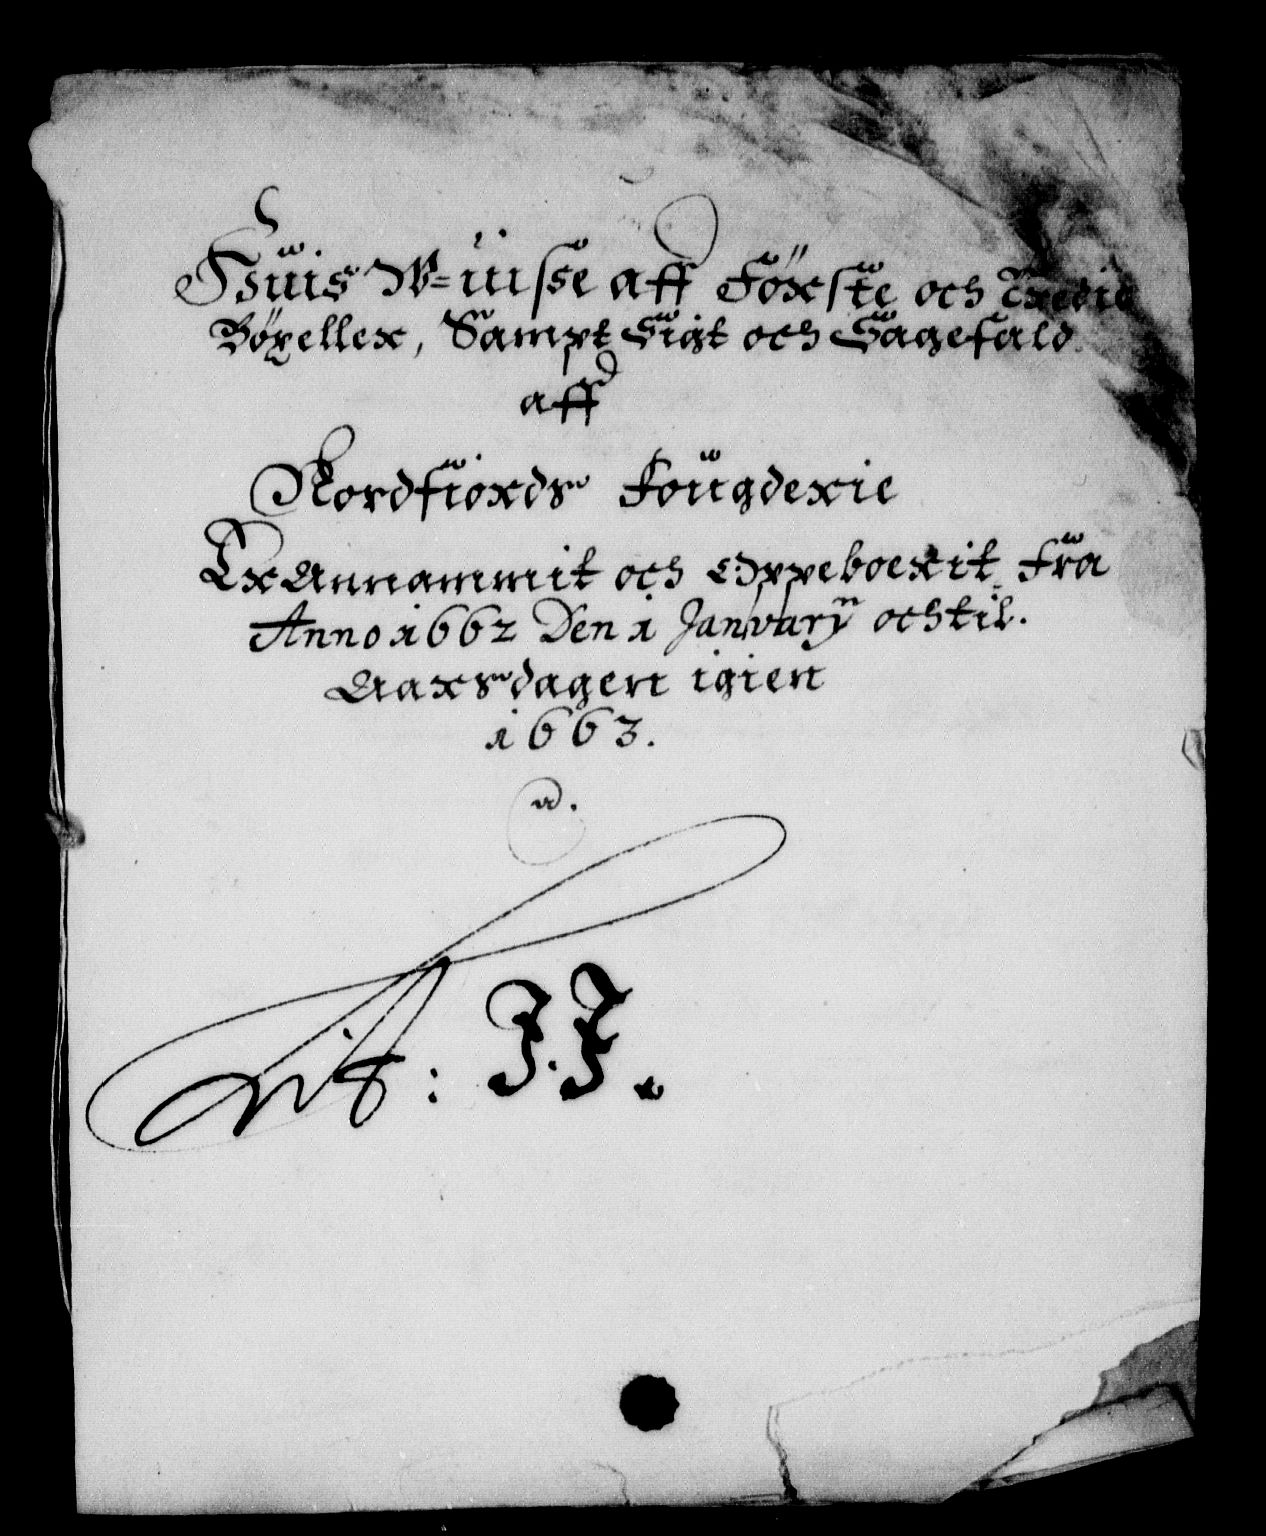 Huis W=uisse aff Første och Tredie
Bøxeller, Sampt Sigt och Sagefald
aff
Nordfiords Fougderie
Er Annammit och Oppeboerit fra
Anno 1662 Den 1 Januarÿ och til
Aarsdagen igien
1663.